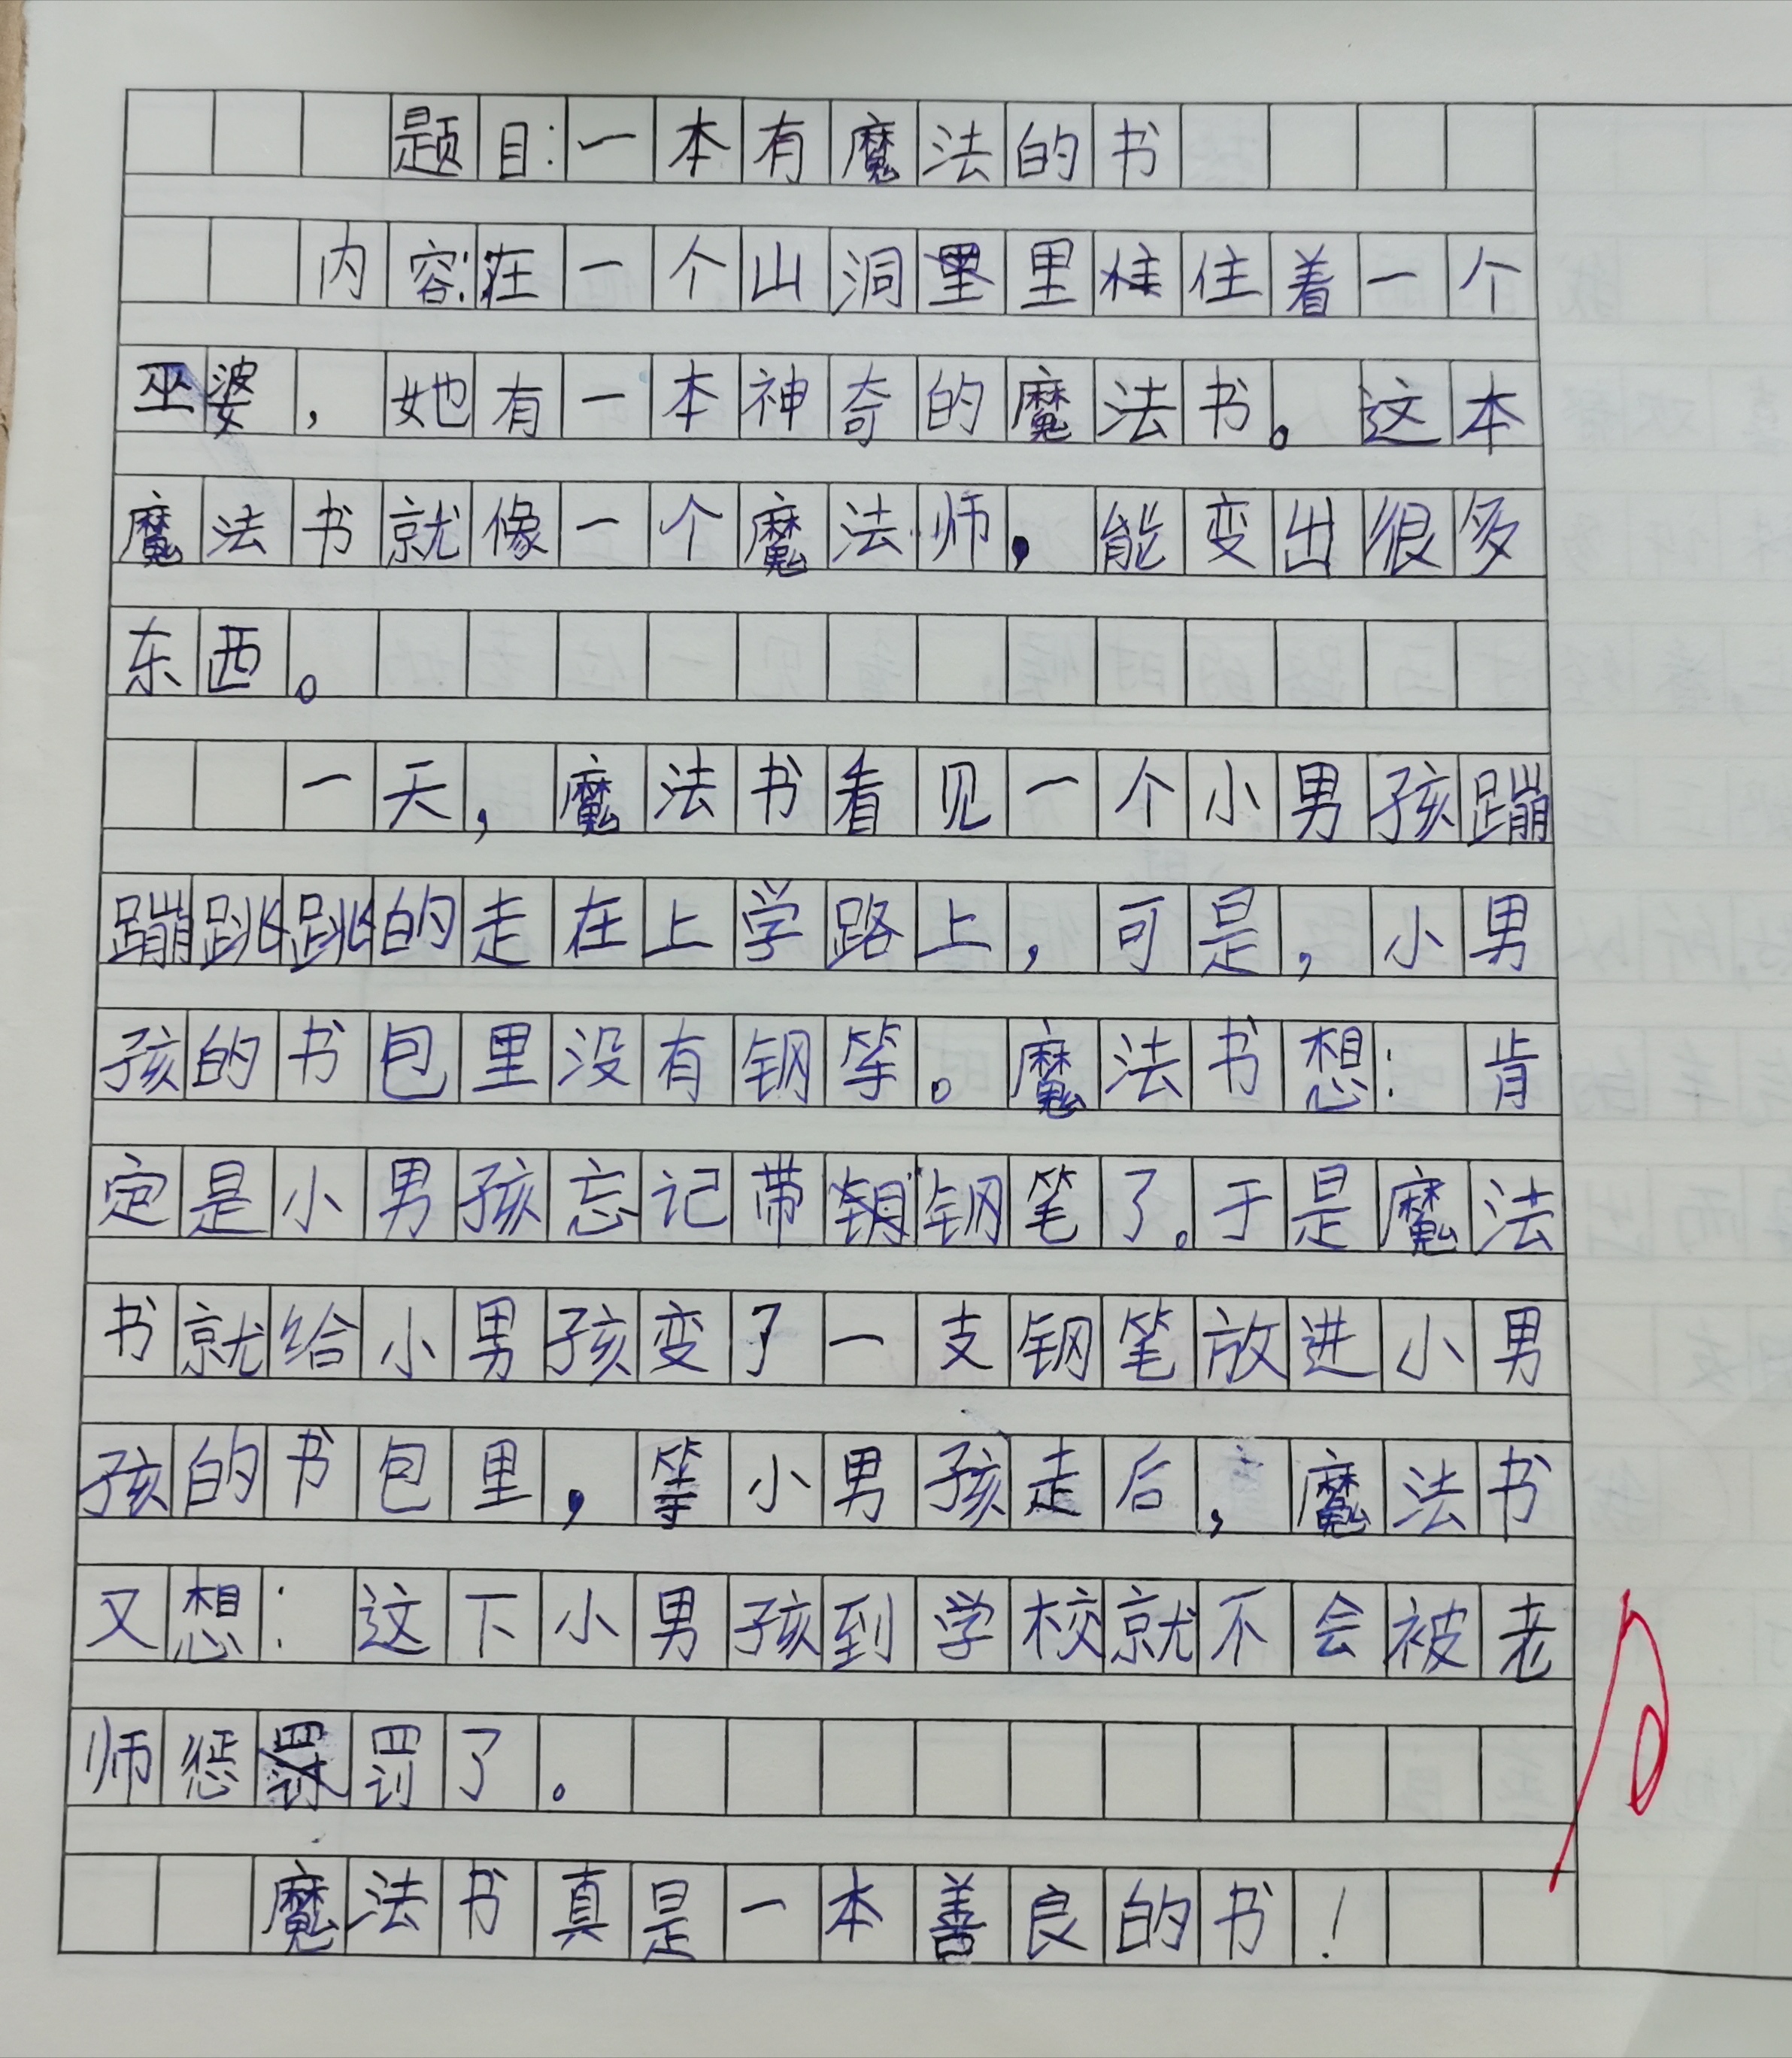 题目:一本有魔法的书
内容:在一个山洞里住着一个
巫婆，她有一本神奇的魔法书。这本
魔法书就像一个魔法师，能变出很多
东西。
一天，魔法书看见一个小男孩蹦
蹦跳跳的走在上学路上，可是，小男
孩的书包里没有钢笔。魔法书想：肯
定是小男孩忘记带钢笔了。于是魔法
书就给小男孩变了一支钢笔放进小男
孩的书包里，等小男孩走后，魔法书
又想：这下小男孩到学校就不会被老
师惩罚了。
魔法书真是一本善良的书！